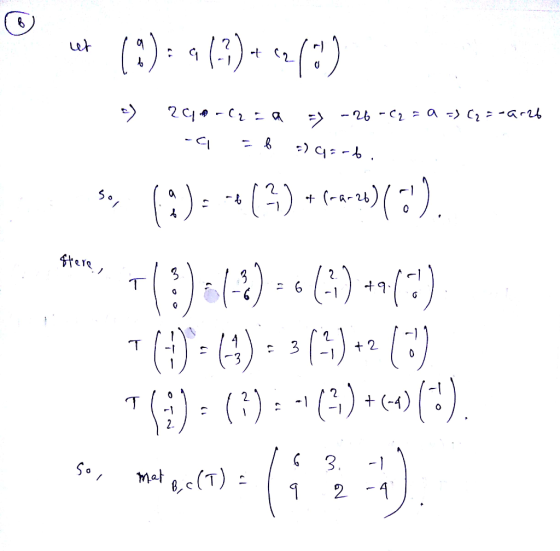 B
Let (a b) = c₁ (2 -1) + c₂ (-1 0)
=> 2c₁ - c₂ = a => -2b - c₂ = a => c₂ = -a-2b
-c₁ = b => c₁ = -b.
So, (a b) = -b (2 -1) + (-a-2b) (-1 0).
Here,
T (3 0 0) = (3 -6) = 6 (2 -1) + 9 (-1 0)
T (1 -1 1) = (4 -3) = 3 (2 -1) + 2 (-1 0)
T (0 -1 2) = (2 1) = -1 (2 -1) + (-4) (-1 0).
So, mat B,C (T) = (6 3. -1
9 2 -4).